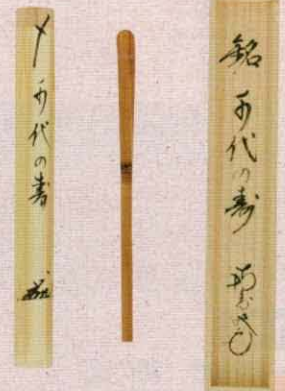 銘 千代の寿
〆 千代の寿